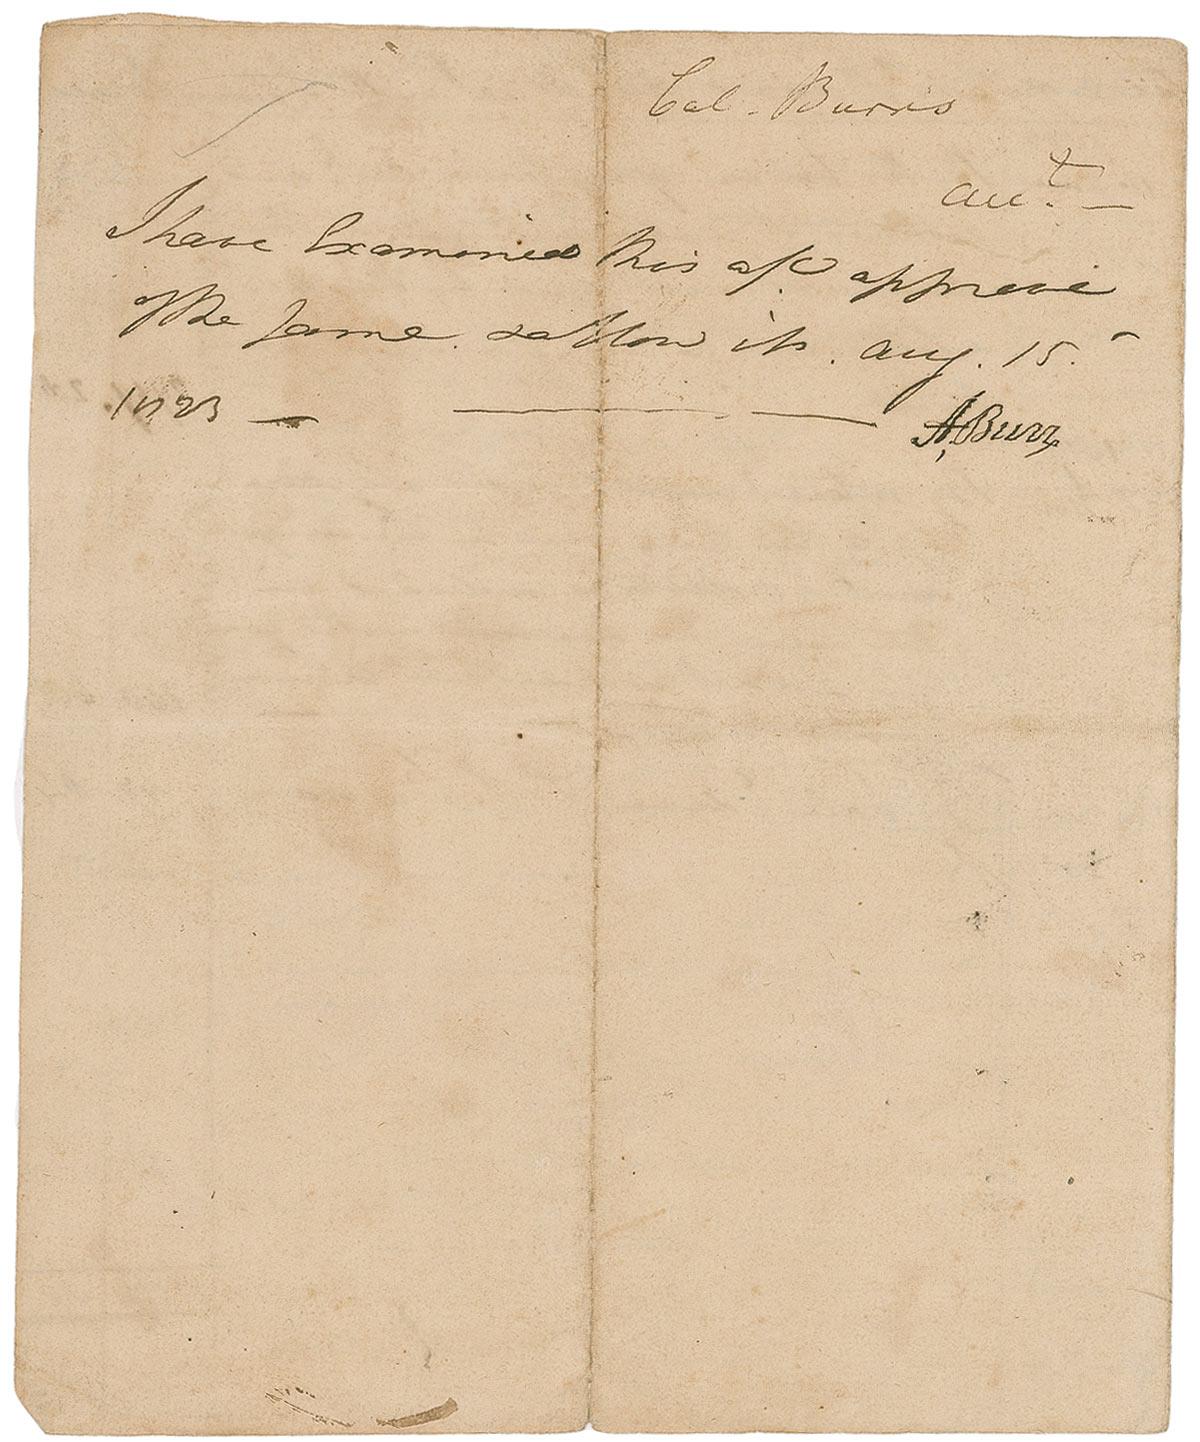 Col. Burr's
acct. —
I have Examined this a/c approve
of the same & allow it. Aug. 15.
1823 — A. Burr